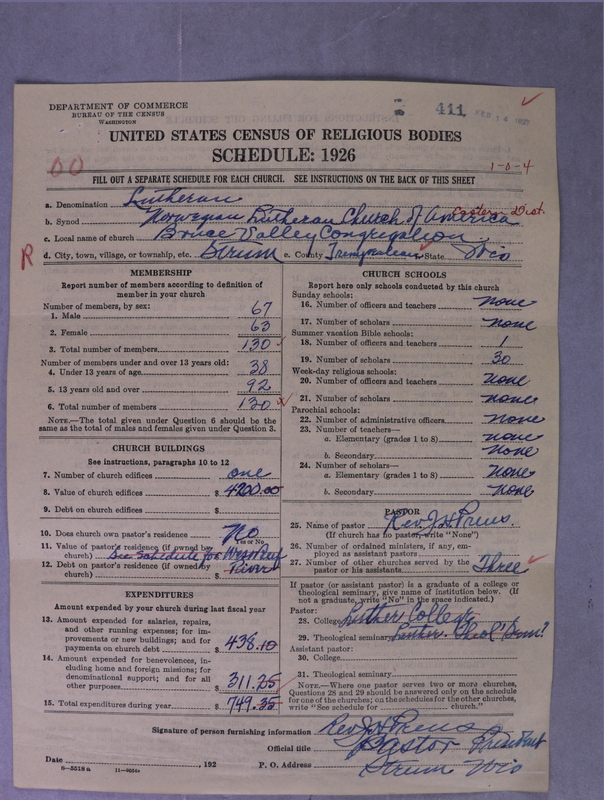 DEPARTMENT OF COMMERCE
BUREAU OF THE CENSUS
WASHINGTON
411 FEB 14 1927
UNITED STATES CENSUS OF RELIGIOUS BODIES
SCHEDULE: 1926
1-0-4
FILL OUT A SEPARATE SCHEDULE FOR EACH CHURCH. SEE INSTRUCTIONS ON THE BACK OF THIS SHEET
a. Denomination Lutheran
b. Synod Norwegian Lutheran Church of America Eastern Dist.
c. Local name of church Bruce Valley Congregation
R
d. City, town, village, or township, etc. Strum e. County Trempealeau State Wis
MEMBERSHIP
Report number of members according to definition of
member in your church
Number of members, by sex:
1. Male 67
2. Female 63
3. Total number of members 130
Number of members under and over 13 years old:
4. Under 13 years of age 38
5. 13 years old and over 92
6. Total number of members 130
NOTE.—The total given under Question 6 should be
the same as the total of males and females given under Question 3.
CHURCH BUILDINGS
See instructions, paragraphs 10 to 12
7. Number of church edifices one
8. Value of church edifices $ 4200.00
9. Debt on church edifices $
10. Does church own pastor's residence? No
Yes or No
11. Value of pastor's residence (if owned by
church) $ See Schedule for West Beef
12. Debt on pastor's residence (if owned by
church) $ River
EXPENDITURES
Amount expended by your church during last fiscal year
13. Amount expended for salaries, repairs,
and other running expenses; for im-
provements or new buildings; and for
payments on church debt $ 438.10
14. Amount expended for benevolences, in-
cluding home and foreign missions; for
denominational support; and for all
other purposes $ 311.25
15. Total expenditures during year $ 749.35
CHURCH SCHOOLS
Report here only schools conducted by this church
Sunday schools:
16. Number of officers and teachers none
17. Number of scholars none
Summer vacation Bible schools:
18. Number of officers and teachers 1
19. Number of scholars 30
Week-day religious schools:
20. Number of officers and teachers none
21. Number of scholars none
Parochial schools:
22. Number of administrative officers none
23. Number of teachers—
a. Elementary (grades 1 to 8) none
b. Secondary none
24. Number of scholars—
a. Elementary (grades 1 to 8) none
b. Secondary none
PASTOR
25. Name of pastor Rev. J. H. Preus.
(If church has no pastor, write "None")
26. Number of ordained ministers, if any, em-
ployed as assistant pastors
27. Number of other churches served by the
pastor or his assistants Three
If pastor (or assistant pastor) is a graduate of a college or
theological seminary, give name of institution below. (If
not a graduate, write "No" in the space indicated.)
Pastor:
28. College Luther College
29. Theological seminary Luther. Theol. Sem.
Assistant pastor:
30. College
31. Theological seminary
NOTE.—Where one pastor serves two or more churches,
Questions 28 and 29 should be answered only on the schedule
for one of the churches; on the schedules for the other churches,
write "See schedule for church."
Signature of person furnishing information Rev J H Preus
Official title Pastor President
Date , 192 P. O. Address Strum Wis